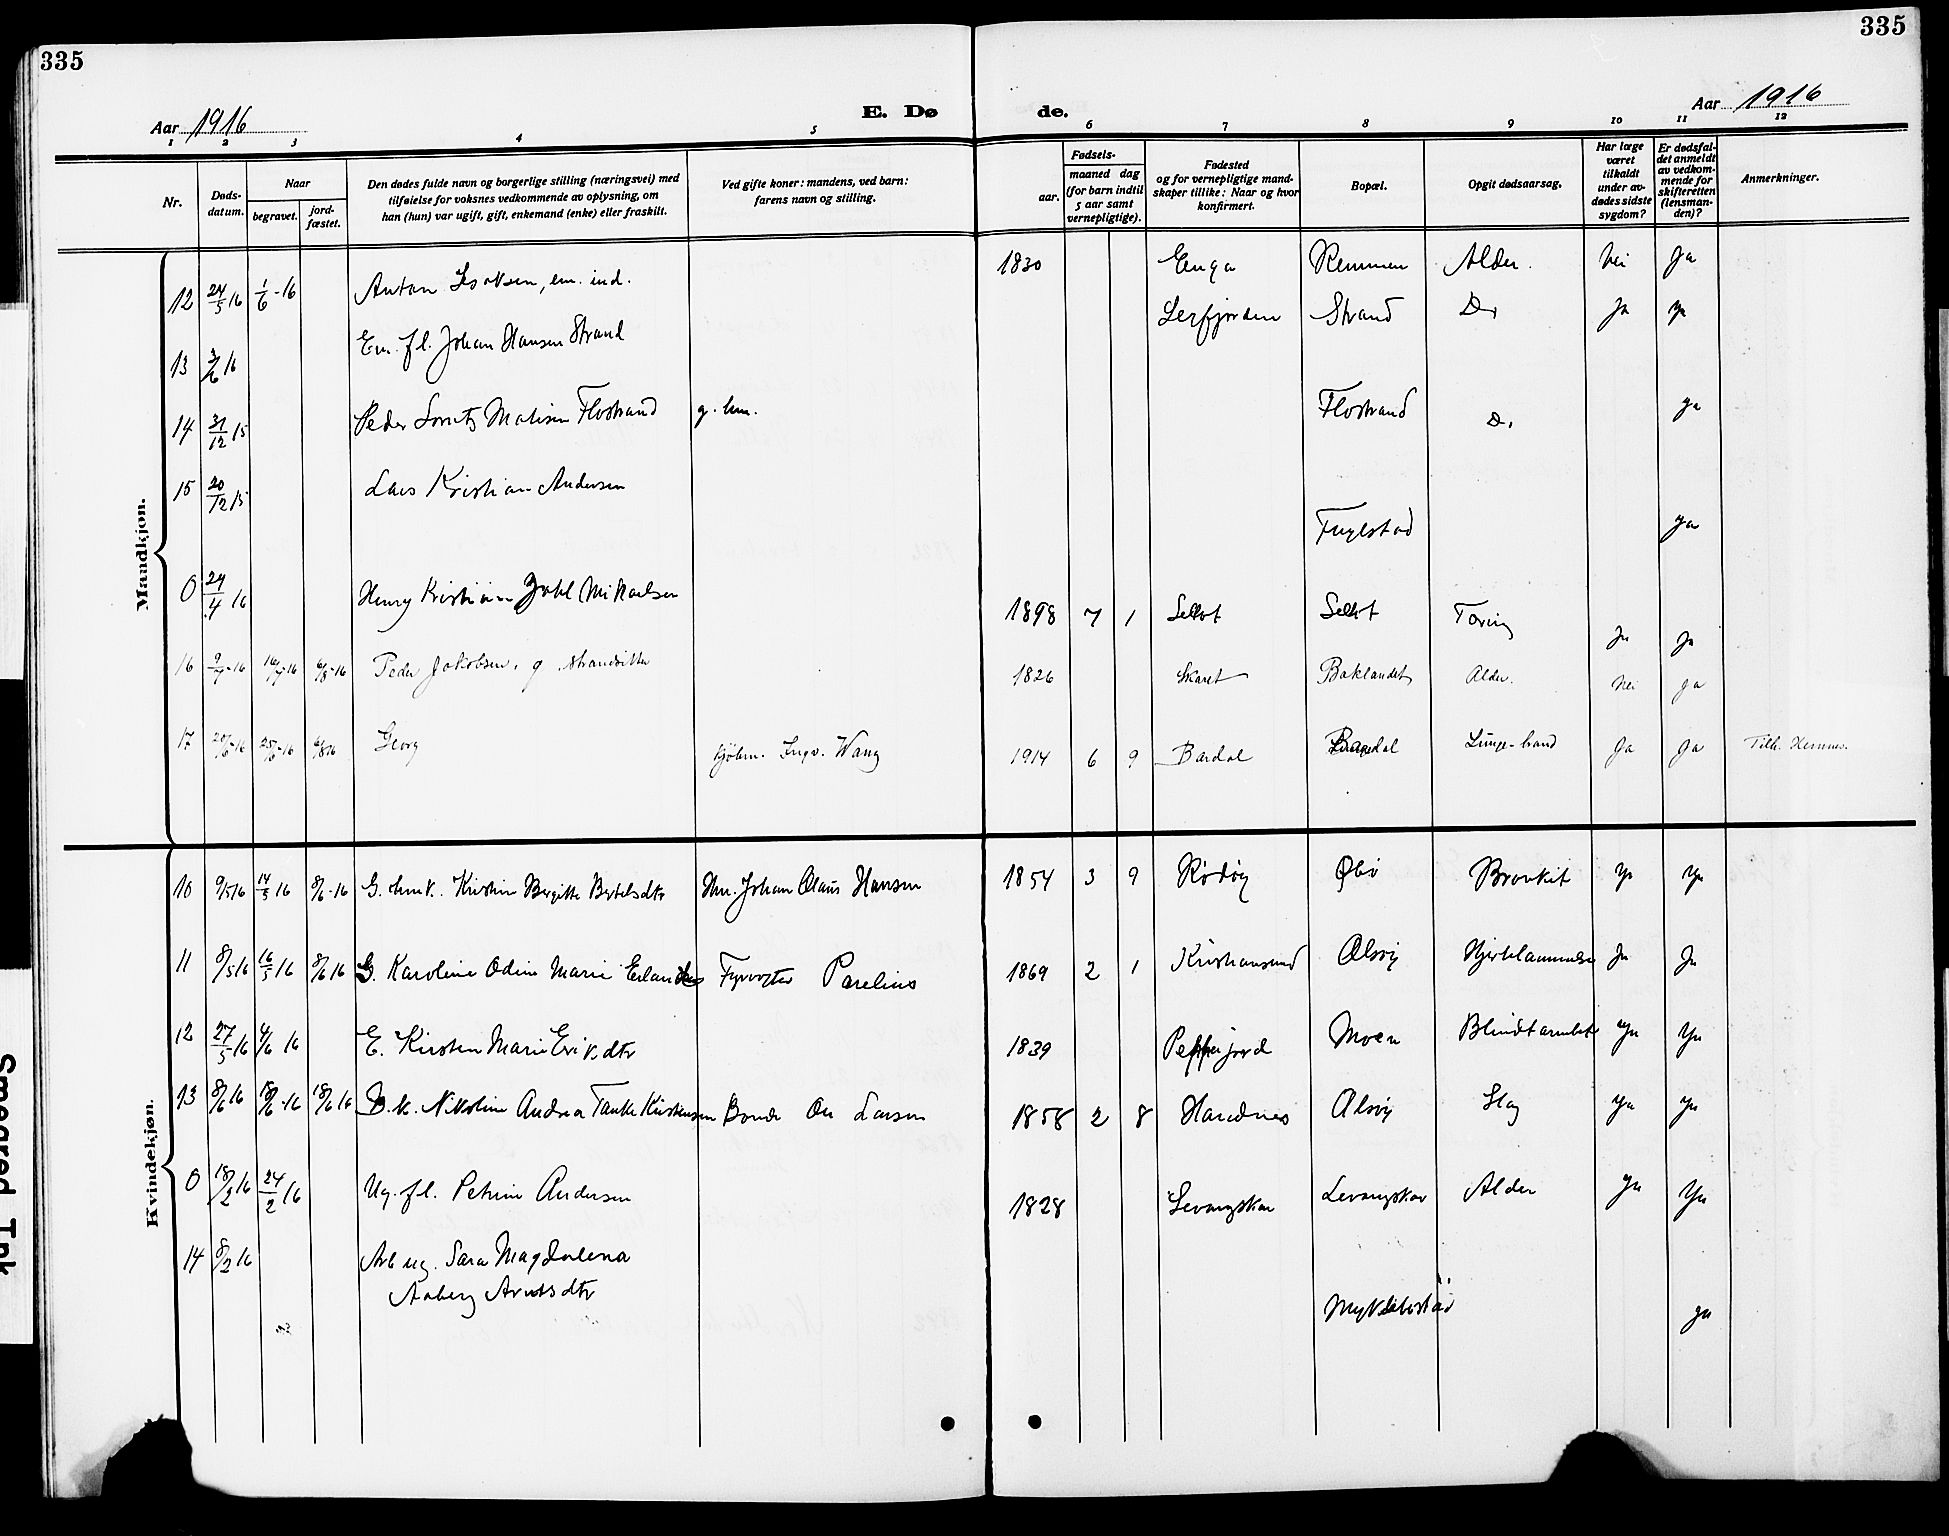 335
335
Aar 1916
E. Dø
de.
Aar 1916
1 2 3 4 5 6 7 8 9 10 11 12
Nr.
Døds-
datum.
Naar
begravet.
jord-
fæstet.
Den dødes fulde navn og borgerlige stilling (næringsvei) med
tilføielse for voksnes vedkommende av oplysning, om
han (hun) var ugift, gift, enkemand (enke) eller fraskilt.
Ved gifte koner: mandens, ved barn:
farens navn og stilling.
Fødsels-
aar.
maaned dag
(for barn indtil
5 aar samt
vernepligtige).
Fødested
og for vernepligtige mand-
skaper tillike: Naar og hvor
konfirmert.
Bopæl.
Opgit dødsaarsag.
Har læge
været
tilkaldt
under av-
dødes sidste
sygdom?
Er dødsfal-
det anmeldt
av vedkom-
mende for
skifteretten
(lensman-
den)?
Anmerkninger.
Mandkjøn.
12 24/5 16 1/6-16 Anton Isaksen, em. ind. 1830 Enga Remmen Alder. Nei Ja
13 3/6 16 Em. fl. Johan Hansen Strand Lerfjorden Strand Do Ja Ja
14 31/12 15 Peder Lorntz Matisen Flostrand g. hm. Flostrand Do Ja
15 20/12 15 Lars Kristian Andersen Fuglstad Ja
0 24/4 16 Henry Kristian Dahl Mikaelsen 1898 7 1 Selfot Selfot Tæring Ja Ja
16 9/7-16 16/7-16 6/8-16 Peder Jakobsen, g. strandsitter 1826 Skaret Baklandet Alder. Nei Ja
17 20/6-16 25/6-16 6/8 16 Georg kjøbm. Ingv. Wang 1914 6 9 Bardal Bardal Lunge-brand Ja Ja Tilh. Hemnes.
Kvindekjøn.
10 9/5 16 14/5 16 8/6-16 G. hmk. Kirstin Bergitte Bertelsdtr Hm. Johan Olaus Hansen 1854 3 9 Rødøy Øbø Bronkit Ja Ja
11 8/5 16 16/5 16 8/6 16 G. Karoline Odine Marie Fyrvogter Parelius 1869 2 1 Kristiansund Alsøy Hjertelammelse Ja Ja
12 27/5 16 4/6 16 E. Kirsten Marie Eriksdtr 1839 Moen Blindtarmbet Ja Ja
13 8/6 16 18/6-16 18/6 16 Nikoline Andrea Tanke Kristensen Bonde Ole Larsen 1858 2 8 Alsøy Slag Ja Ja
0 18/2 16 24/2 16 Ug. fl. Petrine Andersen 1828 Levangskar Levangskar Alder Ja Ja
14 8/2 16 Arb ug. Sara Magdalena
Aaberg Arntsdtr Myklebostad Ja
Smøgred Ink